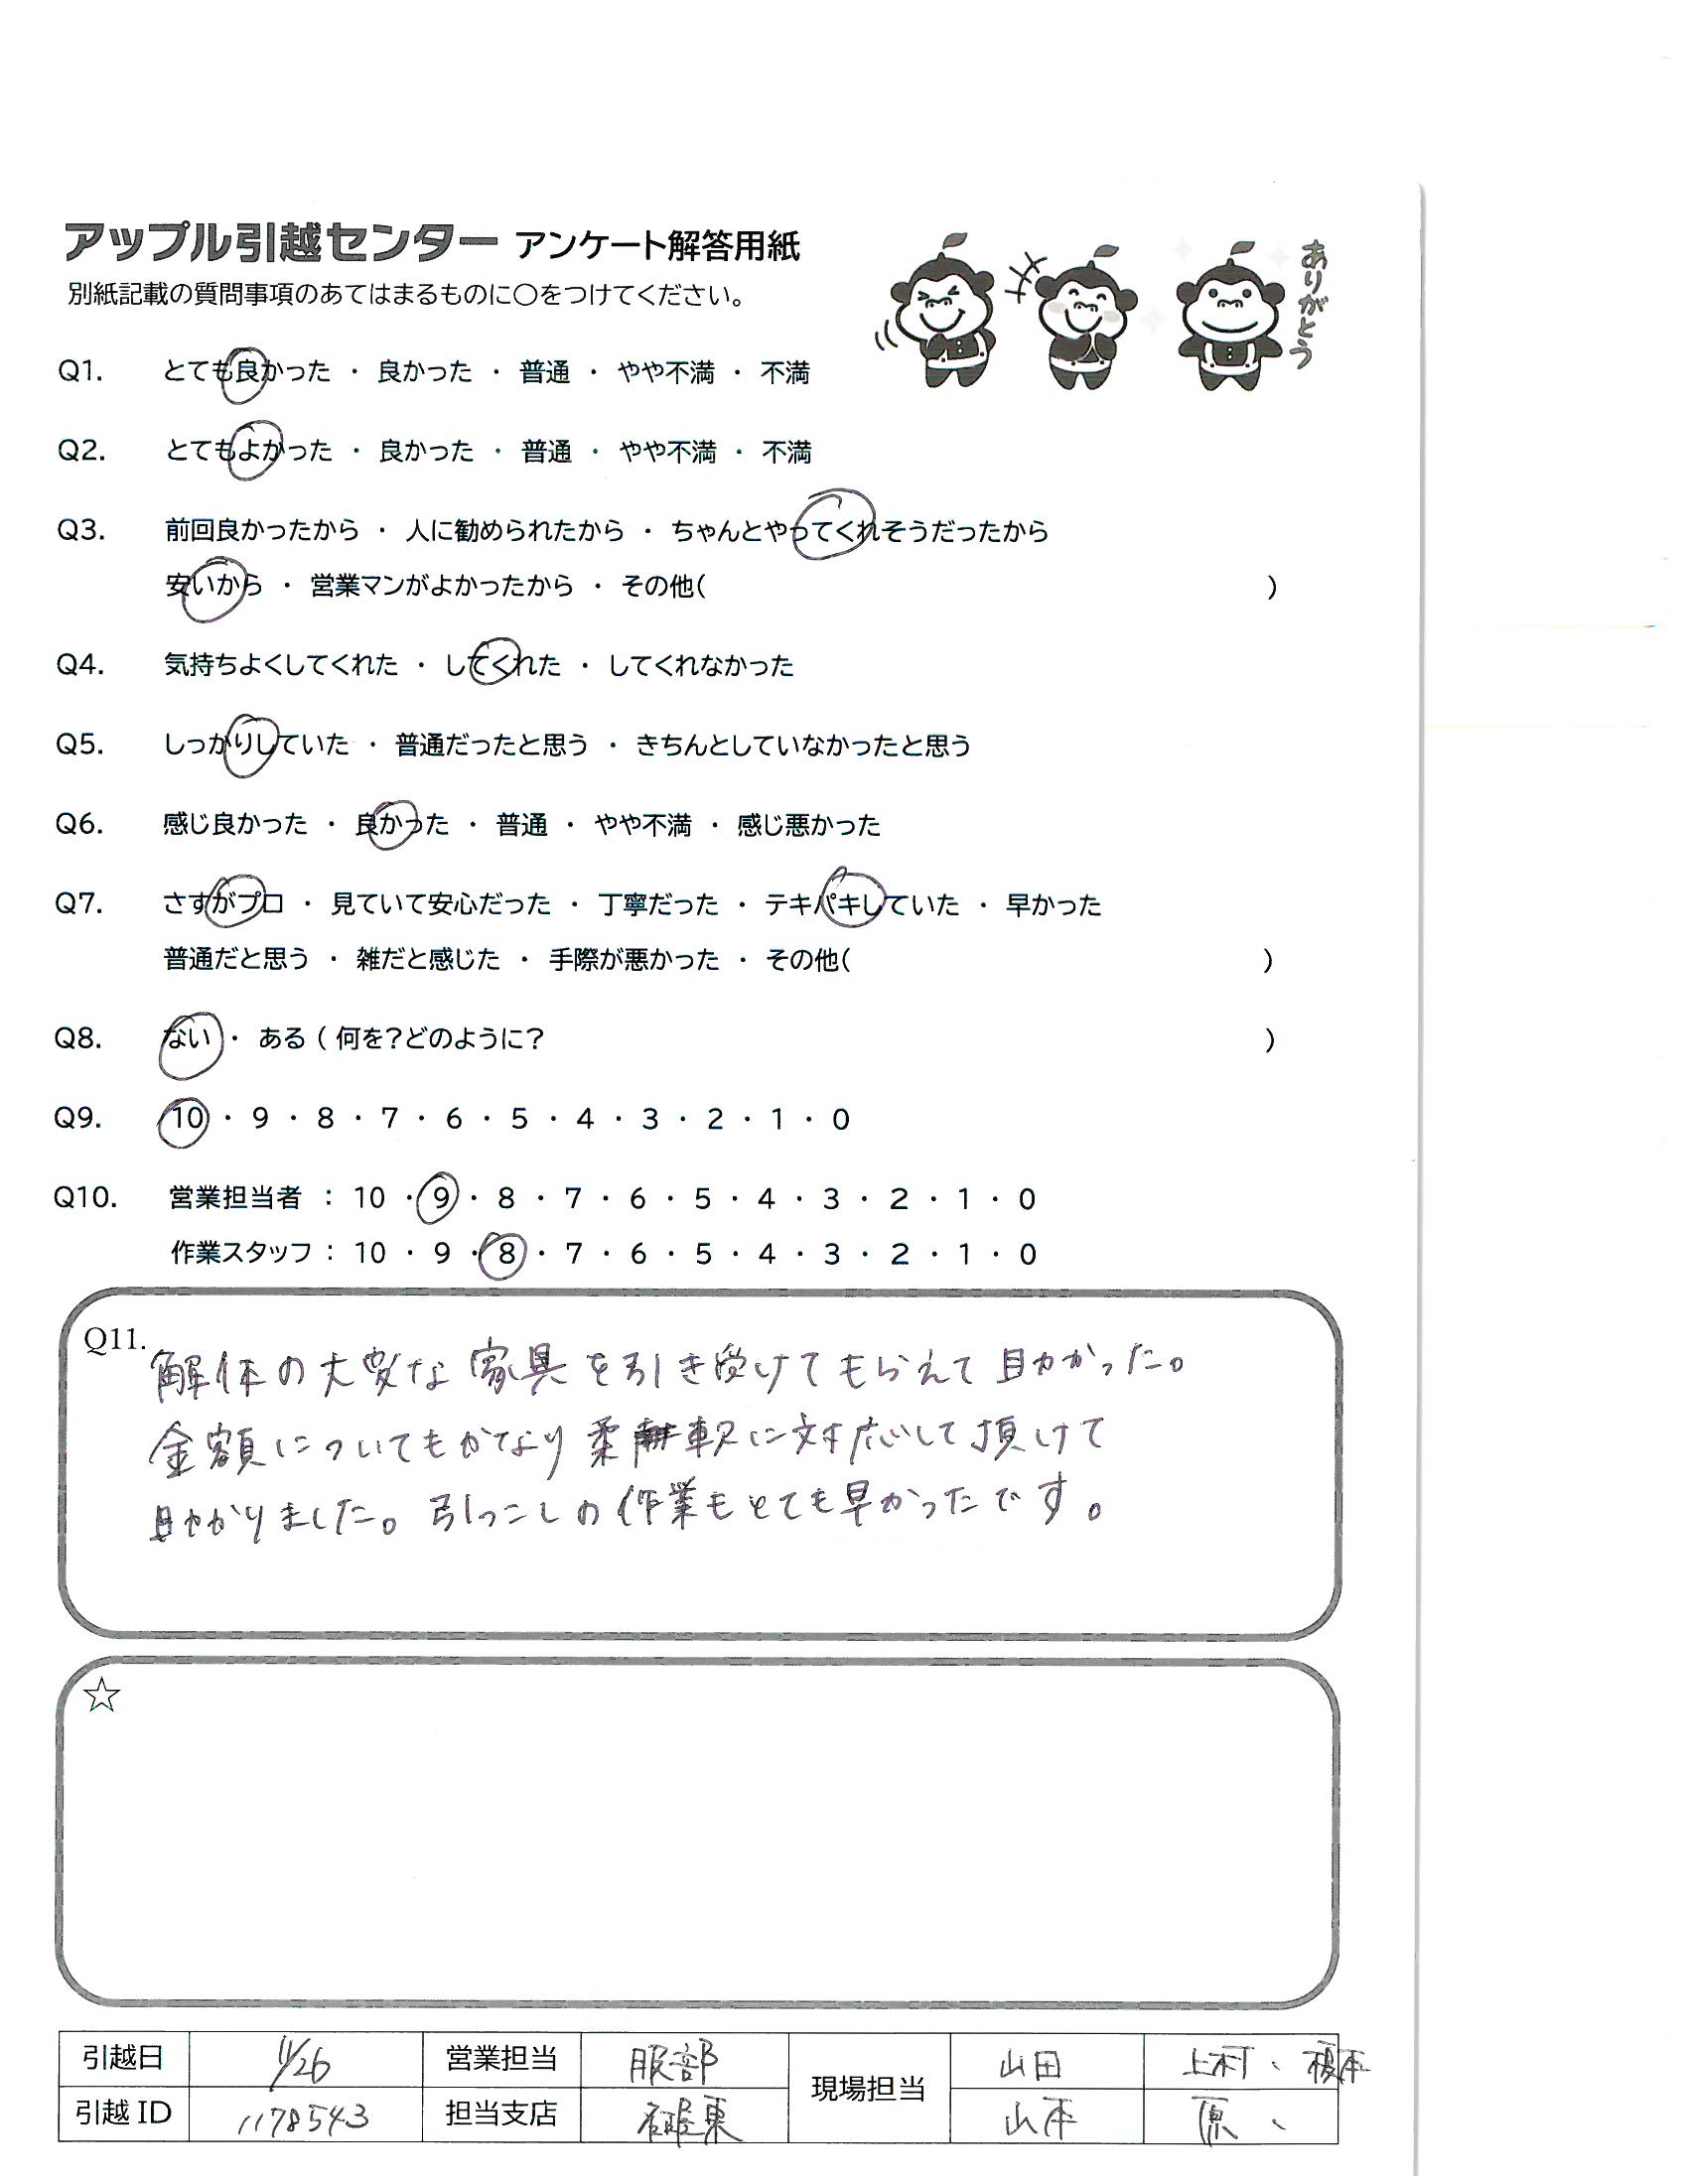 アップル引越センター アンケート解答用紙
別紙記載の質問事項のあてはまるものに〇をつけてください。
ありがとう
Q1. とても良かった ・ 良かった ・ 普通 ・ やや不満 ・ 不満
Q2. とてもよかった ・ 良かった ・ 普通 ・ やや不満 ・ 不満
Q3. 前回良かったから ・ 人に勧められたから ・ ちゃんとやってくれそうだったから
安いから ・ 営業マンがよかったから ・ その他( )
Q4. 気持ちよくしてくれた ・ してくれた ・ してくれなかった
Q5. しっかりしていた ・ 普通だったと思う ・ きちんとしていなかったと思う
Q6. 感じ良かった ・ 良かった ・ 普通 ・ やや不満 ・ 感じ悪かった
Q7. さすがプロ ・ 見ていて安心だった ・ 丁寧だった ・ テキパキしていた ・ 早かった
普通だと思う ・ 雑だと感じた ・ 手際が悪かった ・ その他( )
Q8. ない ・ ある ( 何を?どのように? )
Q9. 10 ・ 9 ・ 8 ・ 7 ・ 6 ・ 5 ・ 4 ・ 3 ・ 2 ・ 1 ・ 0
Q10. 営業担当者 : 10 ・ 9 ・ 8 ・ 7 ・ 6 ・ 5 ・ 4 ・ 3 ・ 2 ・ 1 ・ 0
作業スタッフ : 10 ・ 9 ・ 8 ・ 7 ・ 6 ・ 5 ・ 4 ・ 3 ・ 2 ・ 1 ・ 0
Q11. 解体の大変な家具を引き受けてもらえて助かった。
金額についてもかなり柔軟に対応して頂けて
助かりました。引っこしの作業もとても早かったです。
☆
引越日 11/26 営業担当 服部 現場担当 山田 上村、榎本
引越 ID 1178543 担当支店 山本 原、